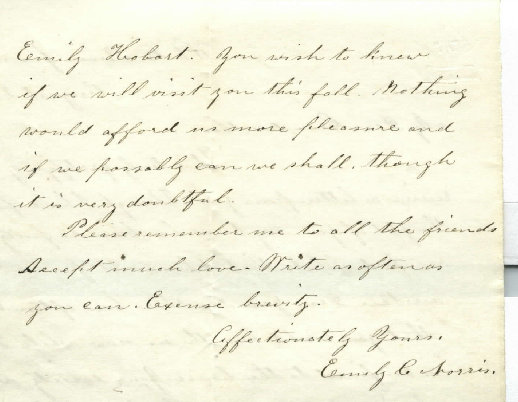 Emily Hobart. You wish to know
if we will visit you this fall. Nothing
would afford us more pleasure and
if we possably can we shall, though
it is very doubtful.
Please remember me to all the friends
Accept much love. Write as often as
you can. Excuse brevity.
Affectionately Yours.
Emily C Norris.